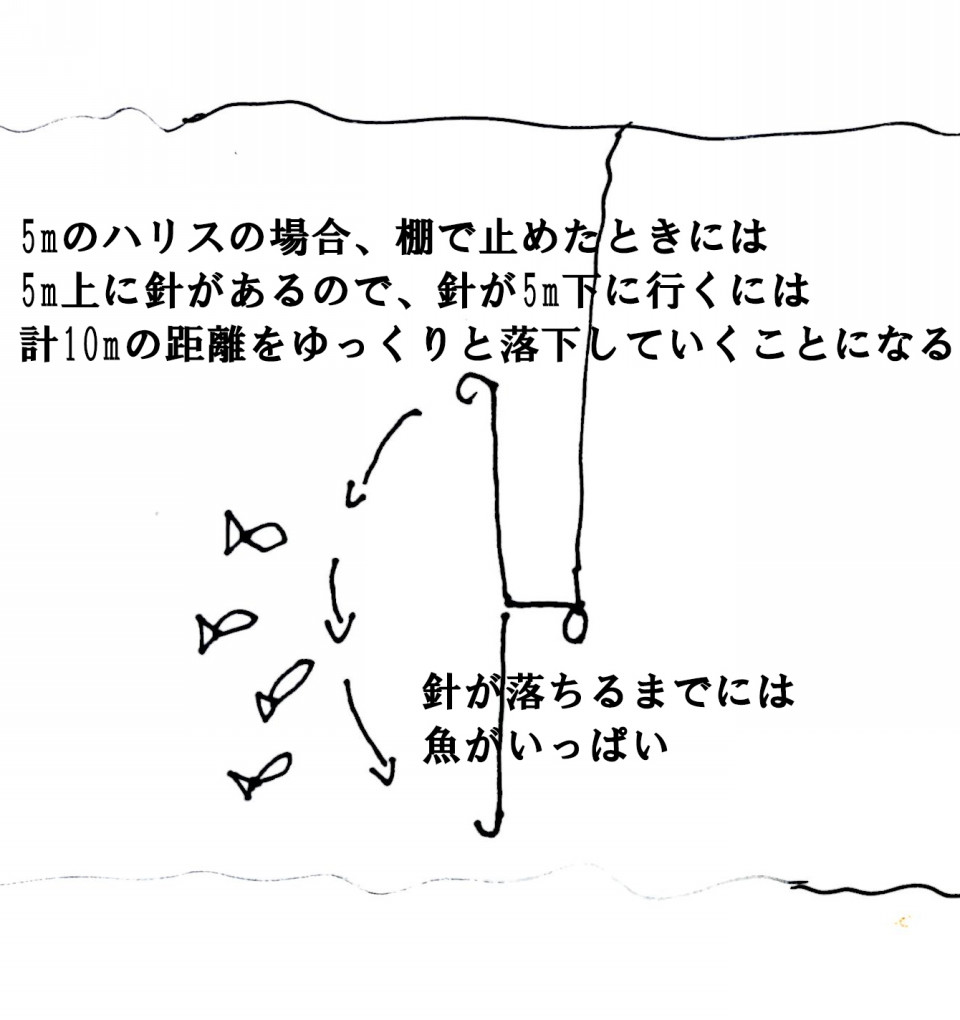 5mのハリスの場合、棚で止めたときには
5m上に針があるので、針が5m下に行くには
計10mの距離をゆっくりと落下していくことになる
針が落ちるまでには
魚がいっぱい